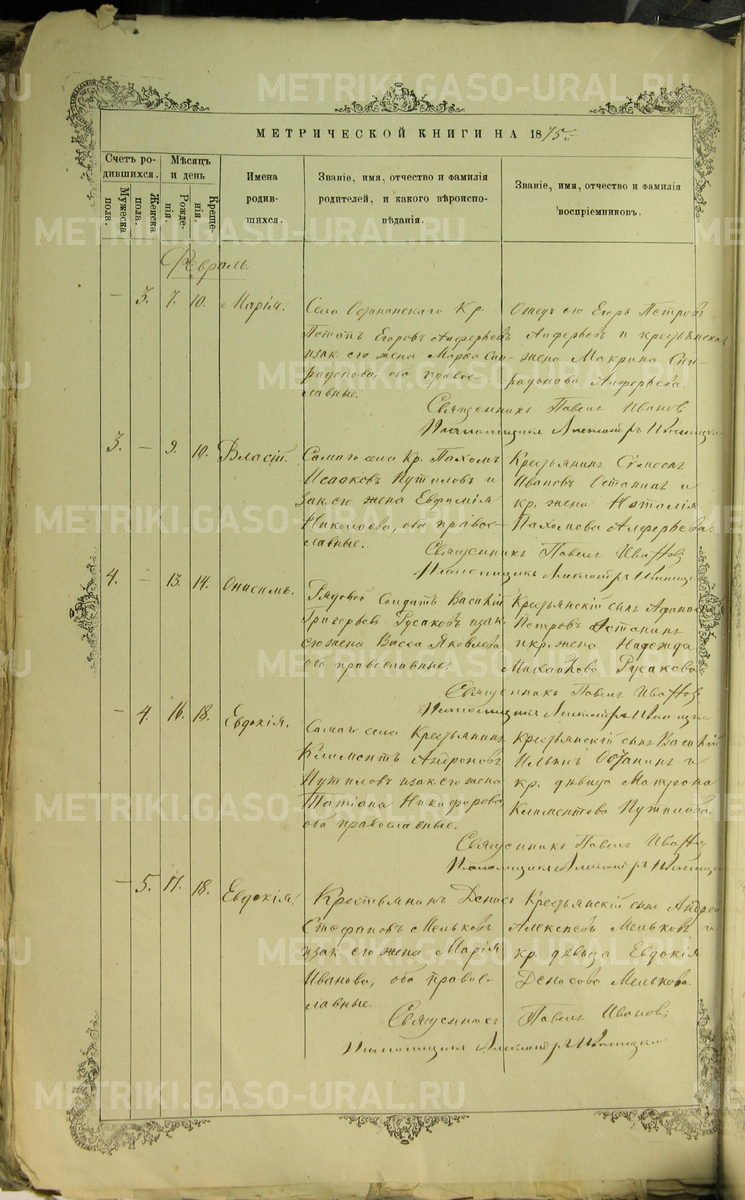 МЕТРИЧЕСКОЙ КНИГИ НА 1875
Счетъ родившихся.
Мужеска пола.
Женска пола.
Мѣсяцъ и день
Рожденія.
Крещенія.
Имена родившихся.
Званіе, имя, отчество и фамилія родителей, и какого вѣроисповѣданія.
Званіе, имя, отчество и фамилія воспріемниковъ.
Февраль.
— 3. 7. 10. Марія.
Села Останинскаго Кр.
Потапъ Егоровъ Алферьевъ
и зак. его жена Марѳа Спиридонова, оба православные.
Отецъ его Егоръ Петровъ
Алферьевъ и крестьянская
жена Макрина Спиридонова Алферьева.
Священникъ Павелъ Ивановъ
3. — 9. 10. Власій.
Самаго села Кр. Пахомъ
Исааковъ Путиловъ и
зак. его жена Евфимія
Николаева, оба православные.
Крестьянинъ
Ивановъ Останинъ и
кр. жена Наталія
Пахомова Алферьева.
Священникъ Павелъ Ивановъ
4. — 13. 14. Онисимъ.
Рядовой Солдатъ Василій
Григорьевъ Русаковъ и зак.
его жена Васса Яковлева
оба православные.
Крестьянскій сынъ
Петровъ Останинъ
и кр. жена Надежда
Михайлова Русакова
Священникъ Павелъ Ивановъ
— 4. 16. 18. Евдокія.
Самаго села Крестьянинъ
Климентъ Андроновъ
Путиловъ и зак. его жена
Татіана Никифорова
оба православные.
Крестьянскій сынъ Василій
Ильинъ Останинъ и
кр. дѣвица Матрона
Климентова Путилова
Священникъ Павелъ Ивановъ
— 5. 17. 18. Евдокія.
Крестьянинъ Денисъ
Стефановъ Мельковъ
и зак. его жена Марія
Иванова, оба православные.
Крестьянскій сынъ Андрей
Алексѣевъ Мельковъ и
кр. дѣвица Евдокія
Денисова Мелькова
Священникъ Павелъ Ивановъ
METRIKI.GASO-URAL.RU